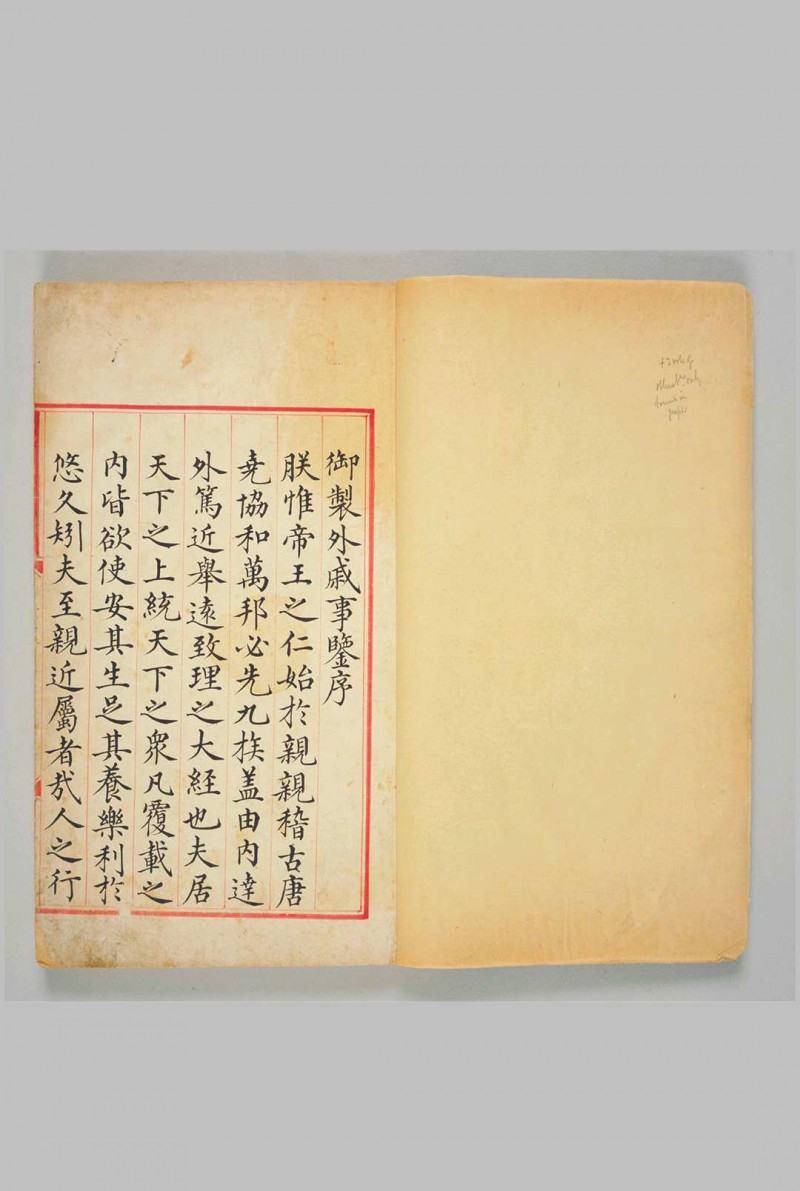 御製外戚事鑒序
朕惟帝王之仁始於親親稽古唐
堯協和萬邦必先九族盖由内達
外篤近舉遠致理之大経也夫居
天下之上統天下之衆凡覆載之
内皆欲使安其生足其養樂利於
悠久矧夫至親近屬者㢤人之行